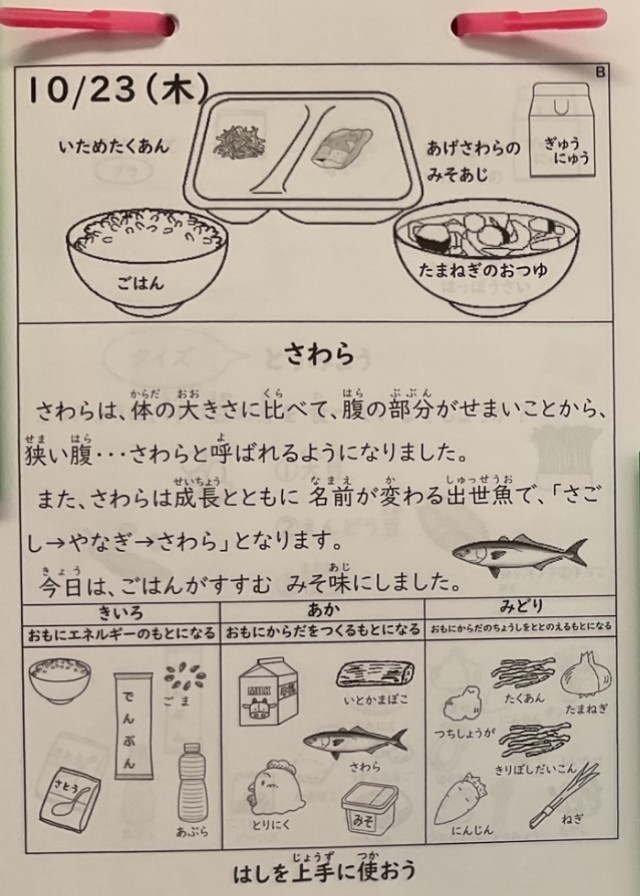 B
10/23(木)
いためたくあん
あげさわらの
みそあじ
ぎゅう
にゅう
ごはん
たまねぎのおつゆ
さわら
さわらは、体の大きさに比べて、腹の部分がせまいことから、
狭い腹・・・さわらと呼ばれるようになりました。
また、さわらは成長とともに 名前が変わる出世魚で、「さご
し→やなぎ→さわら」となります。
今日は、ごはんがすすむ みそ味にしました。
きいろ
あか
みどり
おもにエネルギーのもとになる
おもにからだをつくるもとになる
おもにからだのちょうしをととのえるもとになる
でんぷん
ごま
さとう
あぶら
MILK
いとかまぼこ
さわら
とりにく
みそ
たくあん
たまねぎ
つちしょうが
きりぼしだいこん
にんじん
ねぎ
はしを上手に使おう